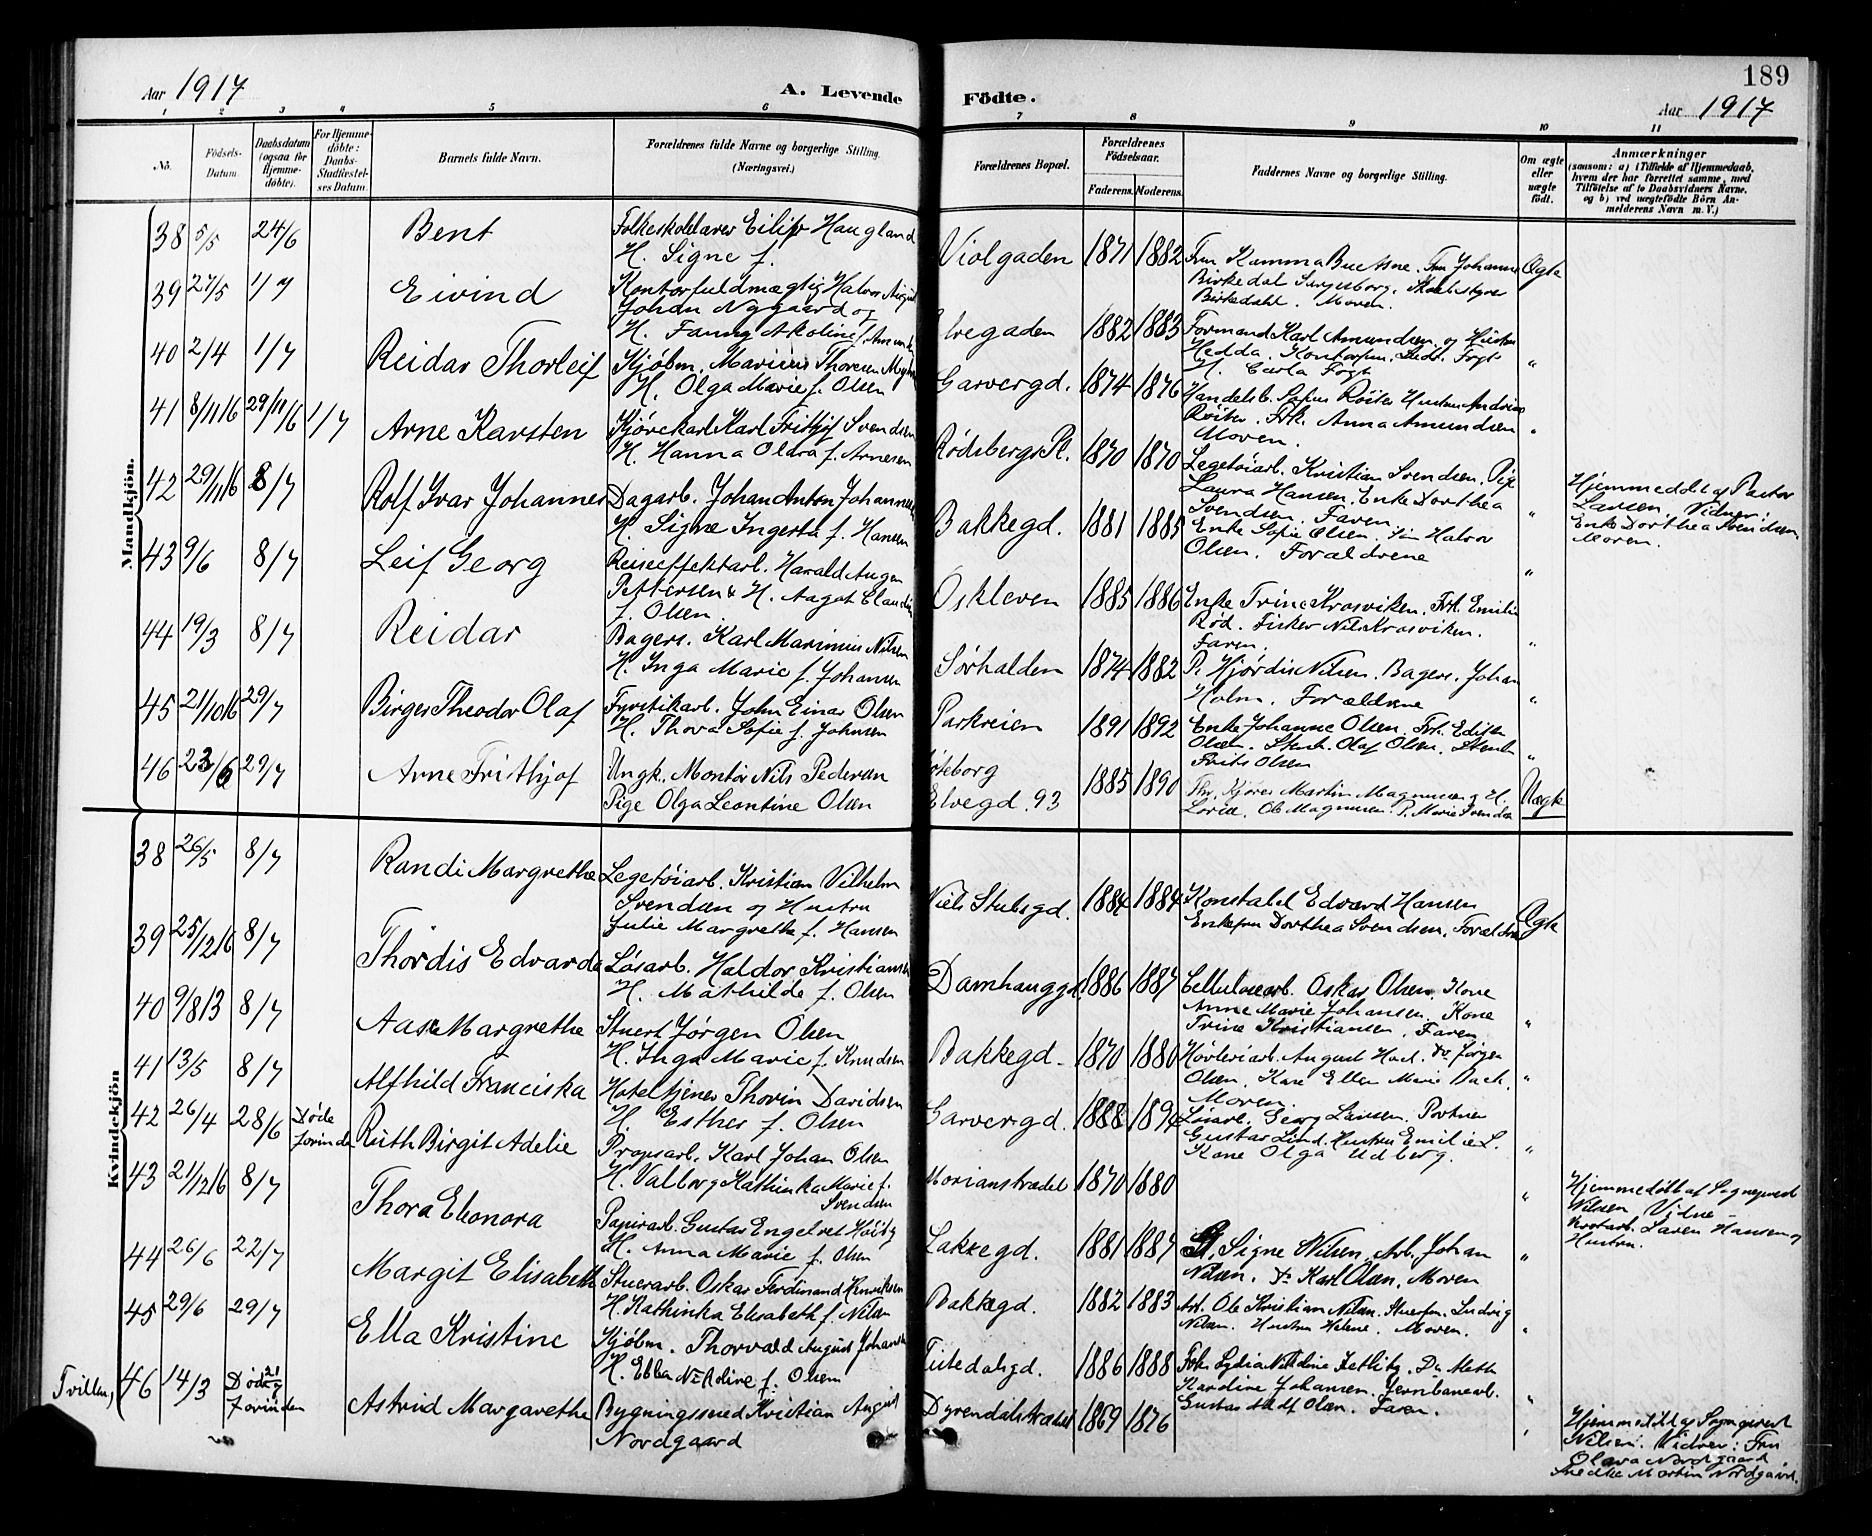 189
Aar 1917
A. Levende Födte.
Aar 1917
1 2 3 4 5 6 7 8 9 10 11
No.
Födsels-Datum.
Daabsdatum (ogsaa for Hjemmedöbte).
For Hjemmedöbte: Daabs-Stadfæstelses Datum.
Barnets fulde Navn.
Forældrenes fulde Navne og borgerlige Stilling.
(Næringsvei.)
Forældrenes Bopæl.
Forældrenes Födselsaar.
Faderens. Moderens.
Faddernes Navne og borgerlige Stilling.
Om ægte eller uægte födt.
Anmærkninger
(saasom: a) i Tilfælde af Hjemmedaab, hvem der har forrettet samme, med Tilföielse af to Daabsvidners Navne, og b) ved uægtefödte Börn Anmelderens Navn m. V.)
Mandkjön.
38 5/5 24/6 Bent
Folkeskolelærer Eilif Haugland
H. Signe f.
Violgaden 1871 1882
Birkedahl. Moren.
Ægte
39 27/5 1/7 Eivind
Kontorfuldmægtig Halvor August
Johan Nygaard og
Elvegaden 1882 1883
Formand Karl Amundsen og Hustru
Hedda.
H. Carla Fogt
"
40 2/4 1/7 Reidar Thorleif
Kjøbm. Marius Thoresen
H. Olga Marie f. Olsen
Garvergd. 1874 1876
Frk. Anna Amundsen
Moren.
"
41 8/11 16 29/11 16 1/7 Arne Karsten
Kjørekarl Karl Frithjof Svendsen
H. Hanna Olava f. Arnesen
Rødsbergs Pl. 1870 1870
Legetøiarb. Kristian Svendsen. Pige
Laura Hansen. Enke Dorthea
Svendsen. Faren
"
Hjemmedøbt af Pastor
Larsen. Vidner:
Enke Dorthea Svendsen
Moren.
42 29/11 16 8/7 Rolf Ivar Johannes
Dagarb. Johan Anton Johannesen
H. Signe Ingerta f. Hansen
Bakkegd. 1881 1885
Enke Sofie Olsen. Halvor
Olsen. Forældrene
"
43 9/6 8/7 Leif Georg
Reiseeffektarb. Harald
Pettersen & H. Aagot
f. Olsen
Oskleven 1885 1886
Enke Trine Krosviken. Frk. Emilie
Rød. Fisker Nils Krosviken.
Faren.
"
44 19/3 8/7 Reidar
Bagers. Karl Marinius Nilsen
H. Inga Marie f. Johansen
Sørhalden 1874 1882
P. Hjørdis Nilsen. Bagers. Johan
Holm. Forældrene
"
45 21/10 16 29/7 Birger Theodor Olaf
Fyrstikarb. John Einar Olsen
H. Thora Sofie f. Johnsen
Parkveien 1891 1892
Enke Johanne Olsen. Frk. Edith
Olsen. Olaf Olsen.
Frits Olsen
"
46 23/6 29/7 Arne Frithjof
Ungk. Montør Nils Pedersen
Pige Olga Leontine Olsen
Göteborg
Elvegd. 93
1885 1890
Kjører Martin Magnussen og H.
Lovise. Ole Magnussen. P. Marie Svendsen
Uægte
Kvindekjön
38 26/5 8/7 Randi Margrethe
Legetøiarb. Kristian Vilhelm
Svendsen og Hustru
Julie Margrethe f. Hansen
Niels Stubsgd. 1884 1884
Konstabel Edvard Hansen
Enkefru Dorthea Svendsen. Forældrene
Ægte
39 25/12 16 8/7 Thordis Edvarda
Løsarb. Haldor Kristiansen
H. Mathilde f. Olsen
Damhauggd. 1886 1887
Cellulosearb. Oskar Olsen. Kone
Anne Marie Johansen. Kone
Trine Kristiansen. Faren
"
40 9/8 13 8/7 Aase Margrethe
Stuert Jørgen Olsen
H. Inga Marie f. Knudsen
Bakkegd. 1870 1880
Høvleriarb. August Do Jørgen
Olsen. Kone Ellen Marie
Moren.
"
41 13/5 8/7 Alfhild Franciska
Hoteltjener Thorin Davidsen
H. Esther f. Olsen
Garvergd. 1888 1894
Løsarb. Georg Larsen. Portner
Gustav Lind. Hustru Emilie L.
Kone Olga Udberg.
"
42 26/4 28/6 Døde forinden Ruth Birgit Adelie
Propsarb. Karl Johan Olsen
H. Valborg Kathinka Marie f.
Svendsen
Morianstrædet 1870 1880
"
Hjemmedøbt af Sogneprest
Nilsen. Vidne
Larsen Hansen og
Hustru.
43 21/12 16 8/7 Thora Eleonora
Papirarb. Gustav Engelret Høiby
H. Anna Marie f. Olsen
Lakkegd. 1881 1887
P. Signe Nilsen. Arb. Johan
Nilsen. Do Karl Olsen. Moren
"
44 26/6 22/7 Margit Elisabeth
Stuerarb. Oskar Ferdinand Henriksen
H. Kathinka Elisabeth f. Nilsen
Bakkegd. 1882 1883
Arb. Ole Kristian Nilsen. Ludvig
Nilsen. Hustru Helene. Moren.
"
45 29/6 29/7 Ella Kristine
Kjøbm. Thorvald August Johansen
H. Ebba Nikoline f. Olsen
Tistedalsgd. 1886 1888
Frk. Lydia Nikoline
Kardine Johansen. Jernbanearb.
Gustav Adolf Olsen. Faren.
"
Tvilling 46 14/3 Døde 21/7 forinden Astrid Margarethe
Bygningssned Kristian August
Nordgaard
Dyrendalstrædet 1869 1876
"
Hjemmedøbt af Sogneprest
Nilsen. Vidner: Fru
Olava Nordgaard
Snedker Martin Nordgaard.